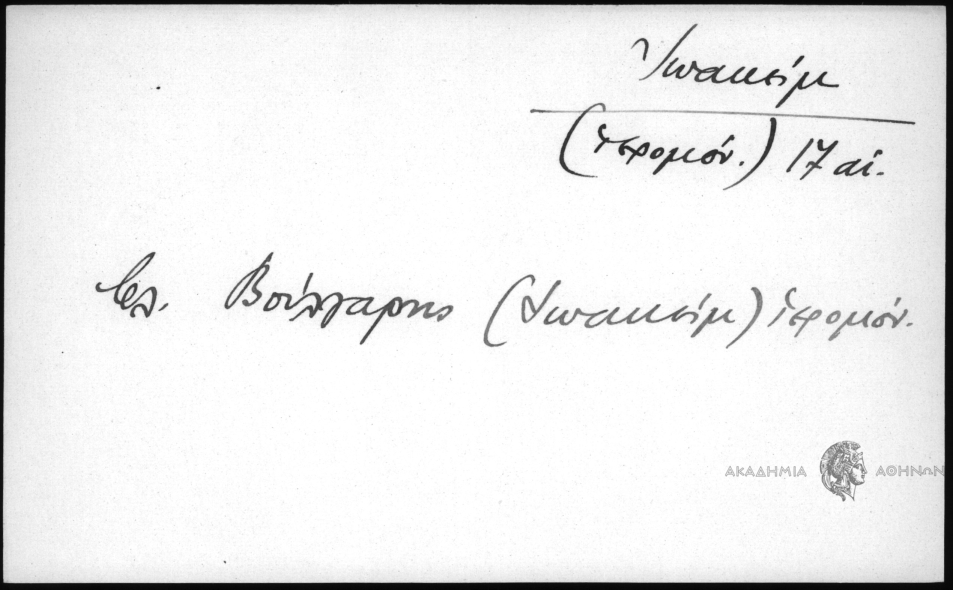 Ἰωακείμ
(ἱερομόν.) 17 αἰ.
βλ. Βούλγαρης (Ἰωακείμ) ἱερομόν.
ΑΚΑΔΗΜΙΑ ΑΘΗΝΩΝ